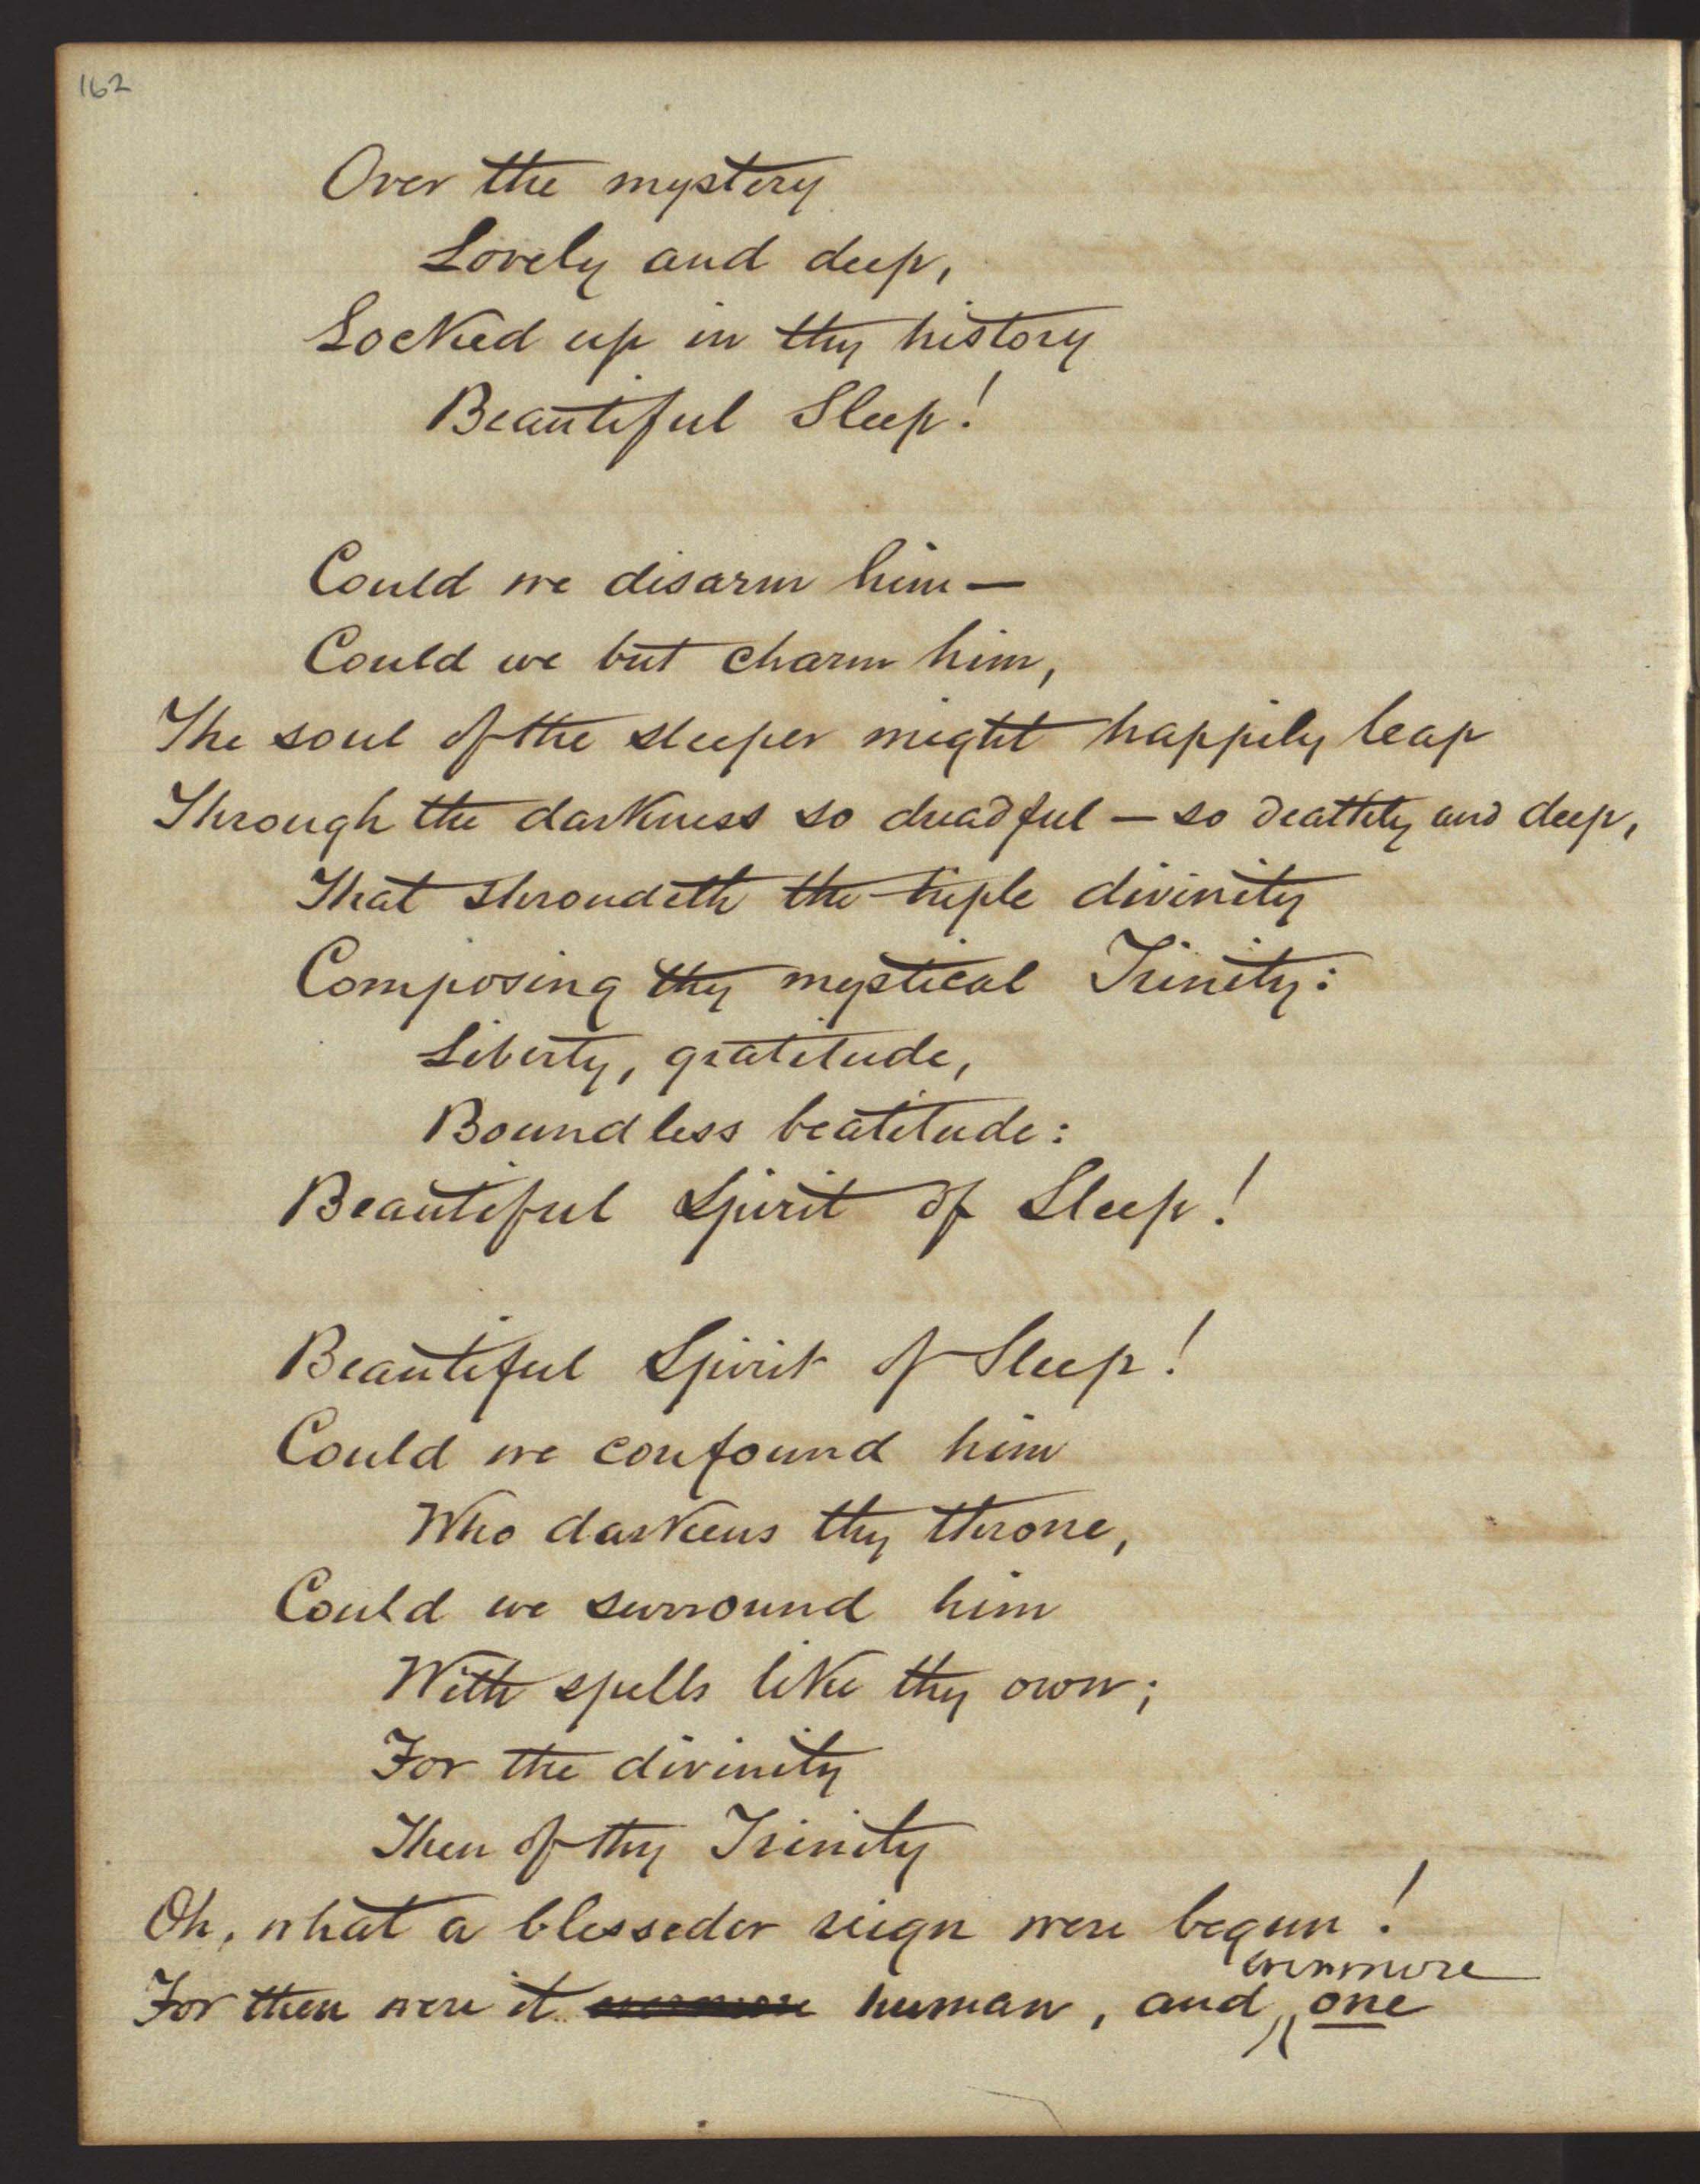 162
Over the mystery
Lovely and deep,
Locked up in thy history
Beautiful Sleep!
Could we disarm him —
Could we but charm him,
The soul of the sleeper might happily leap
Through the darkness so dreadful — so deathly and deep,
That shroudeth the triple divinity
Composing thy mystical Trinity:
Liberty, gratitude,
Boundless beatitude:
Beautiful Spirit of Sleep!
Beautiful Spirit of Sleep!
Could we confound him
Who darkens thy throne,
Could we surround him
With spells like thy own;
For the divinity
Then of thy Trinity
Oh, what a blesseder reign were begun!
evermore
For then were it evermore human, and one